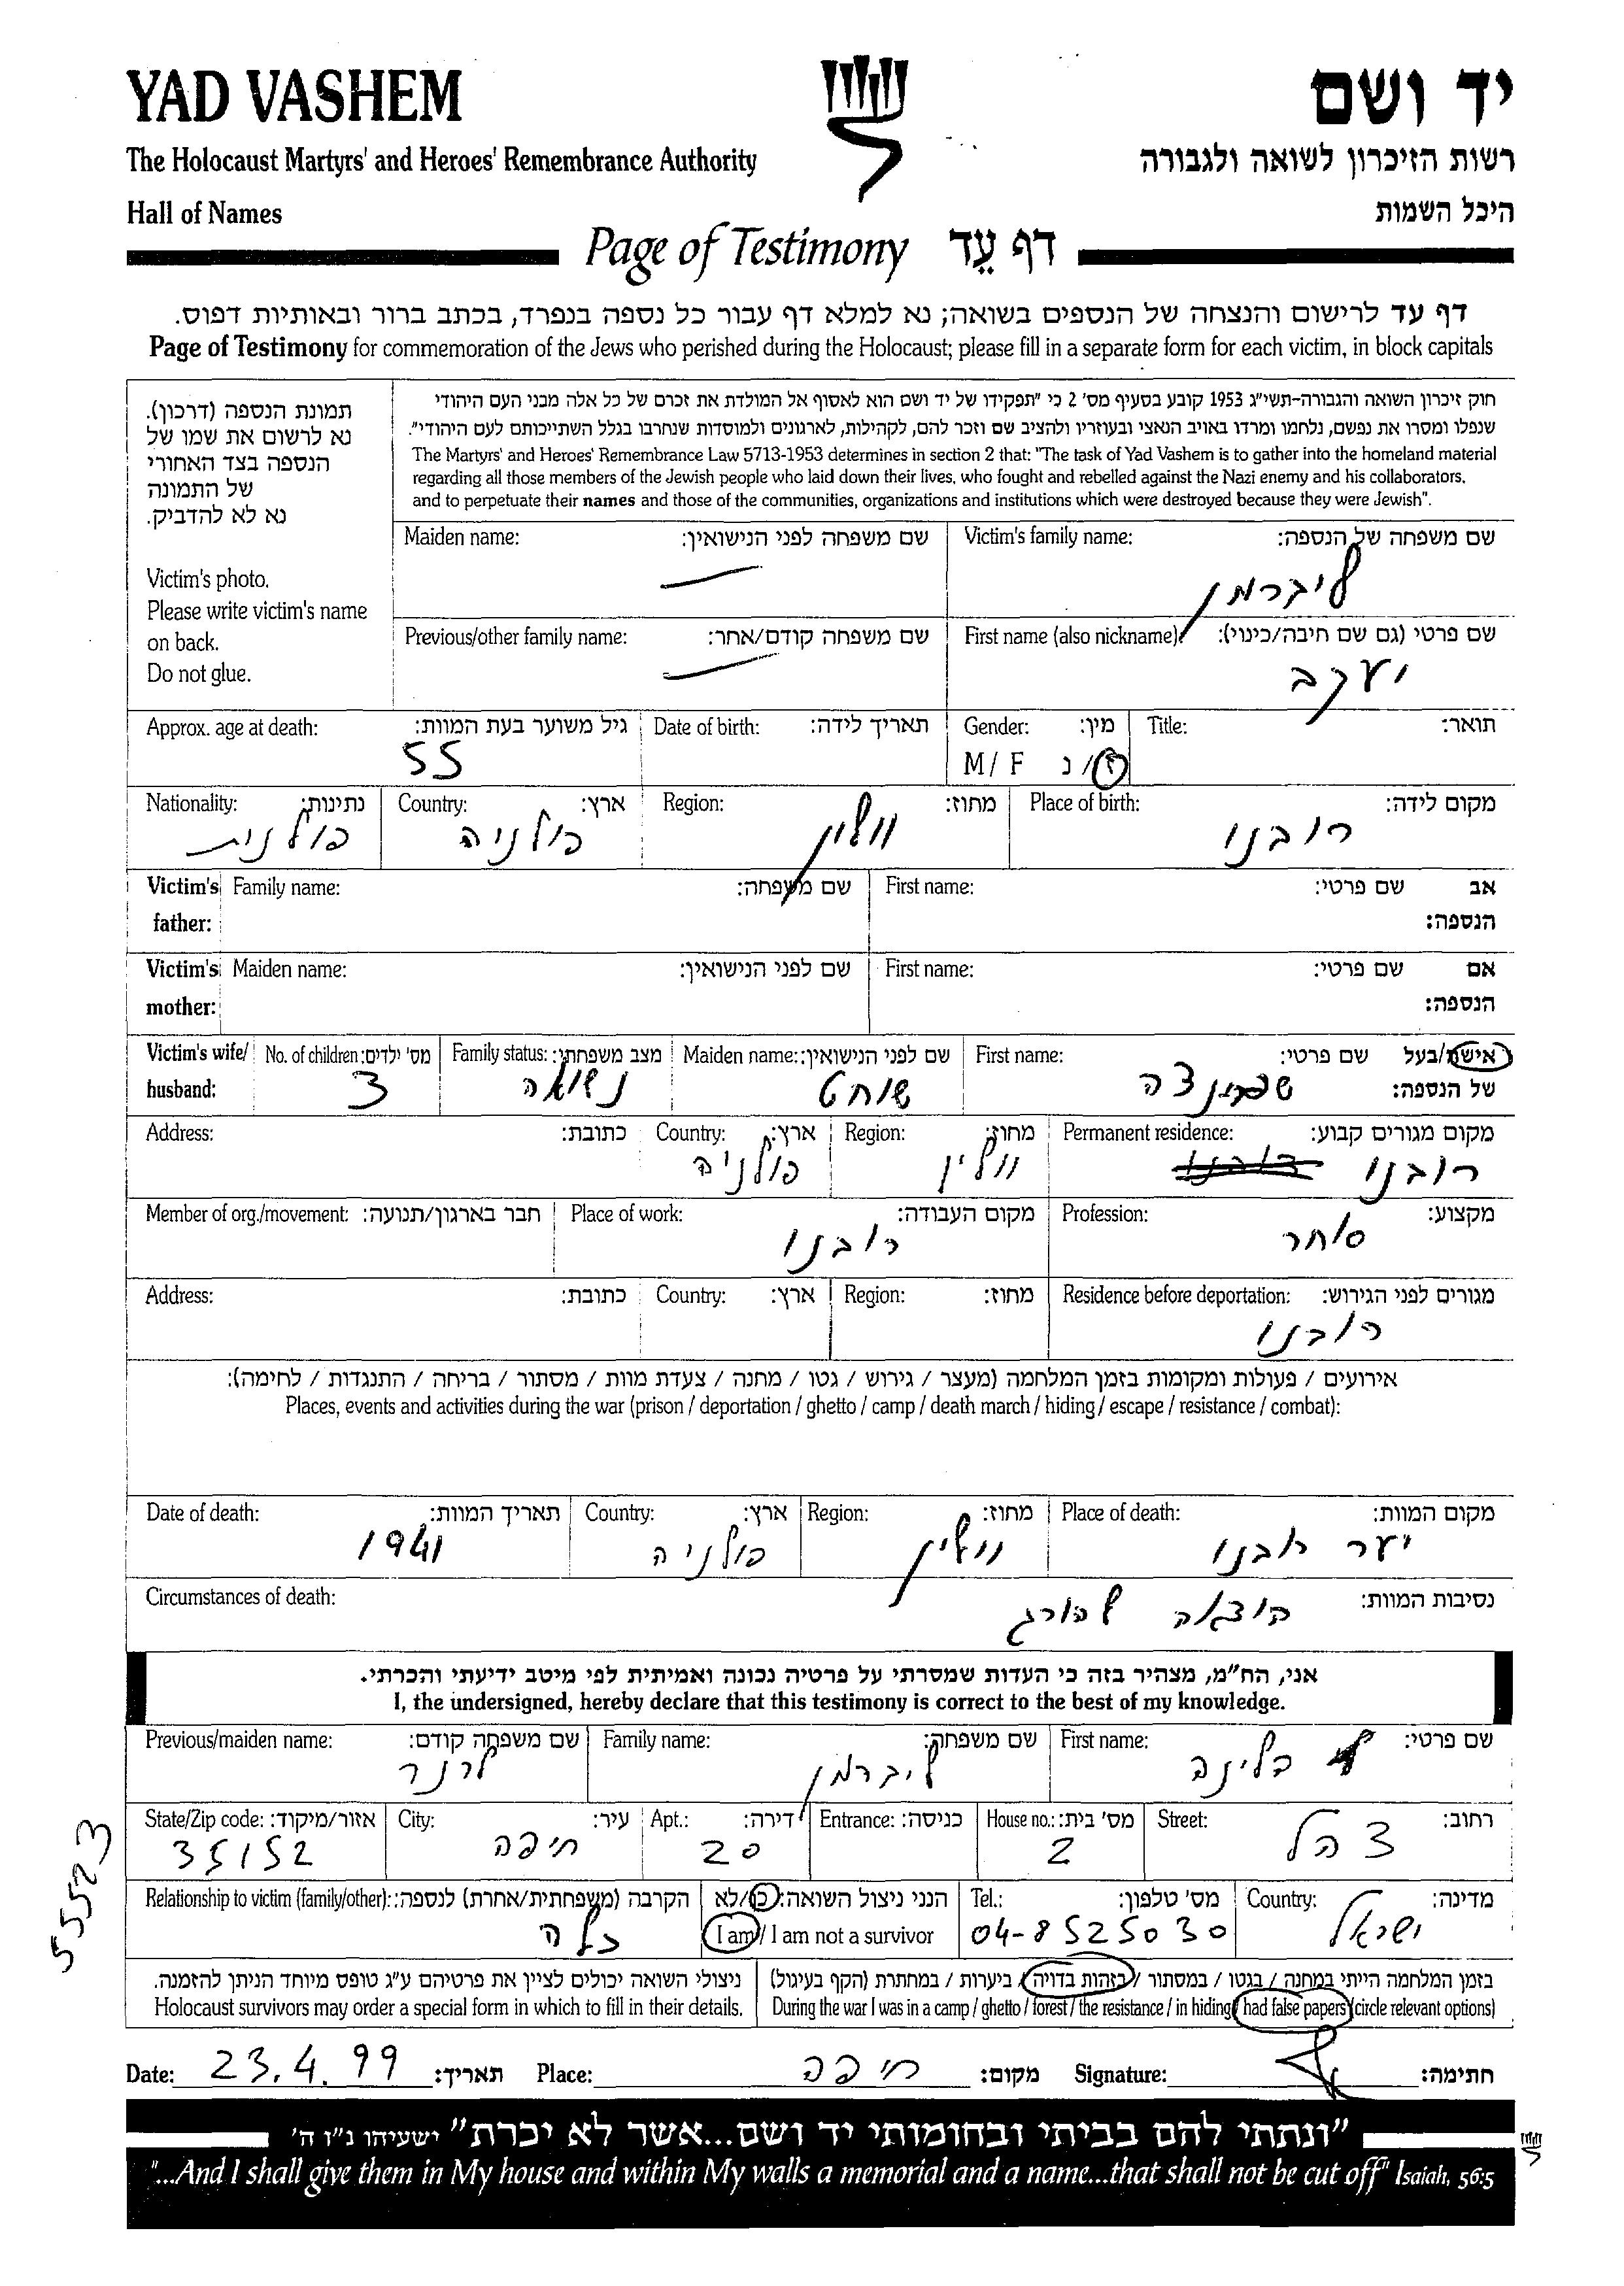 YAD VASHEM
יד ושם
The Holocaust Martyrs' and Heroes' Remembrance Authority
רשות הזיכרון לשואה ולגבורה
Hall of Names
היכל השמות
Page of Testimony דף עֵד
דף עד לרישום והנצחה של הנספים בשואה; נא למלא דף עבור כל נספה בנפרד, בכתב ברור ובאותיות דפוס.
Page of Testimony for commemoration of the Jews who perished during the Holocaust; please fill in a separate form for each victim, in block capitals
תמונת הנספה (דרכון).
נא לרשום את שמו של
הנספה בצד האחורי
של התמונה
נא לא להדביק.
Victim's photo.
Please write victim's name
on back.
Do not glue.
חוק זיכרון השואה והגבורה-תשי"ג 1953 קובע בסעיף מס' 2 כי "תפקידו של יד ושם הוא לאסוף אל המולדת את זכרם של כל אלה מבני העם היהודי
שנפלו ומסרו את נפשם, נלחמו ומרדו באויב הנאצי ובעוזריו ולהציב שם וזכר להם, לקהילות, לארגונים ולמוסדות שנחרבו בגלל השתייכותם לעם היהודי".
The Martyrs' and Heroes' Remembrance Law 5713-1953 determines in section 2 that: "The task of Yad Vashem is to gather into the homeland material
regarding all those members of the Jewish people who laid down their lives, who fought and rebelled against the Nazi enemy and his collaborators,
and to perpetuate their names and those of the communities, organizations and institutions which were destroyed because they were Jewish".
Maiden name: שם משפחה לפני הנישואין: Victim's family name: שם משפחה של הנספה:
ליברמן
Previous/other family name: שם משפחה קודם/אחר: First name (also nickname): שם פרטי (גם שם חיבה/כינוי):
יעקב
Approx. age at death: גיל משוער בעת המוות: Date of birth: תאריך לידה: Gender: מין: Title: תואר:
55 M/ F ז/נ
Nationality: נתינות: Country: ארץ: Region: מחוז: Place of birth: מקום לידה:
פולנית פולניה ווולין רובנו
Victim's father: Family name: שם משפחה: First name: שם פרטי: אב הנספה:
Victim's mother: Maiden name: שם לפני הנישואין: First name: שם פרטי: אם הנספה:
Victim's wife/ husband: No. of children: מס' ילדים: Family status: מצב משפחתי: Maiden name: שם לפני הנישואין: First name: שם פרטי: אישה/בעל של הנספה:
3 נשואה שוחט שפרינצה
Address: כתובת: Country: ארץ: Region: מחוז: Permanent residence: מקום מגורים קבוע:
פולניה ווולין רובנו
Member of org./movement: חבר בארגון/תנועה: Place of work: מקום העבודה: Profession: מקצוע:
רובנו סוחר
Address: כתובת: Country: ארץ: Region: מחוז: Residence before deportation: מגורים לפני הגירוש:
רובנו
אירועים / פעולות ומקומות בזמן המלחמה (מעצר / גירוש / גטו / מחנה / צעדת מוות / מסתור / בריחה / התנגדות / לחימה):
Places, events and activities during the war (prison / deportation / ghetto / camp / death march / hiding / escape / resistance / combat):
Date of death: תאריך המוות: Country: ארץ: Region: מחוז: Place of death: מקום המוות:
1941 פולניה ווולין יער רובנו
Circumstances of death: נסיבות המוות:
הוצאה להורג
אני, הח"מ, מצהיר בזה כי העדות שמסרתי על פרטיה נכונה ואמיתית לפי מיטב ידיעתי והכרתי.
I, the undersigned, hereby declare that this testimony is correct to the best of my knowledge.
Previous/maiden name: שם משפחה קודם: Family name: שם משפחה: First name: שם פרטי:
לרנר ליברמן הלינה
State/Zip code: אזור/מיקוד: City: עיר: Apt.: דירה: Entrance: כניסה: House no.: מס' בית: Street: רחוב:
35152 חיפה 20 2 צהל
Relationship to victim (family/other): הקרבה (משפחתית/אחרת) לנספה: הנני ניצול השואה: כן/לא Tel.: מס' טלפון: Country: מדינה:
כלה I am/ I am not a survivor 04-8525030 ישראל
5523
ניצולי השואה יכולים לציין את פרטיהם ע"ג טופס מיוחד הניתן להזמנה.
Holocaust survivors may order a special form in which to fill in their details.
בזמן המלחמה הייתי במחנה / בגטו / במסתור / בזהות בדויה / ביערות / במחתרת (הקף בעיגול)
During the war I was in a camp / ghetto / forest / the resistance / in hiding / had false papers (circle relevant options)
Date: 23.4.99 תאריך: Place: חיפה מקום: Signature: חתימה:
"ונתתי להם בביתי ובחומותי יד ושם...אשר לא יכרת" ישעיהו נ"ו ה'
"...And I shall give them in My house and within My walls a memorial and a name...that shall not be cut off" Isaiah, 56:5